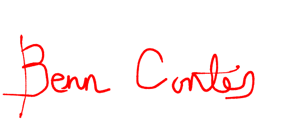 Benn Contés